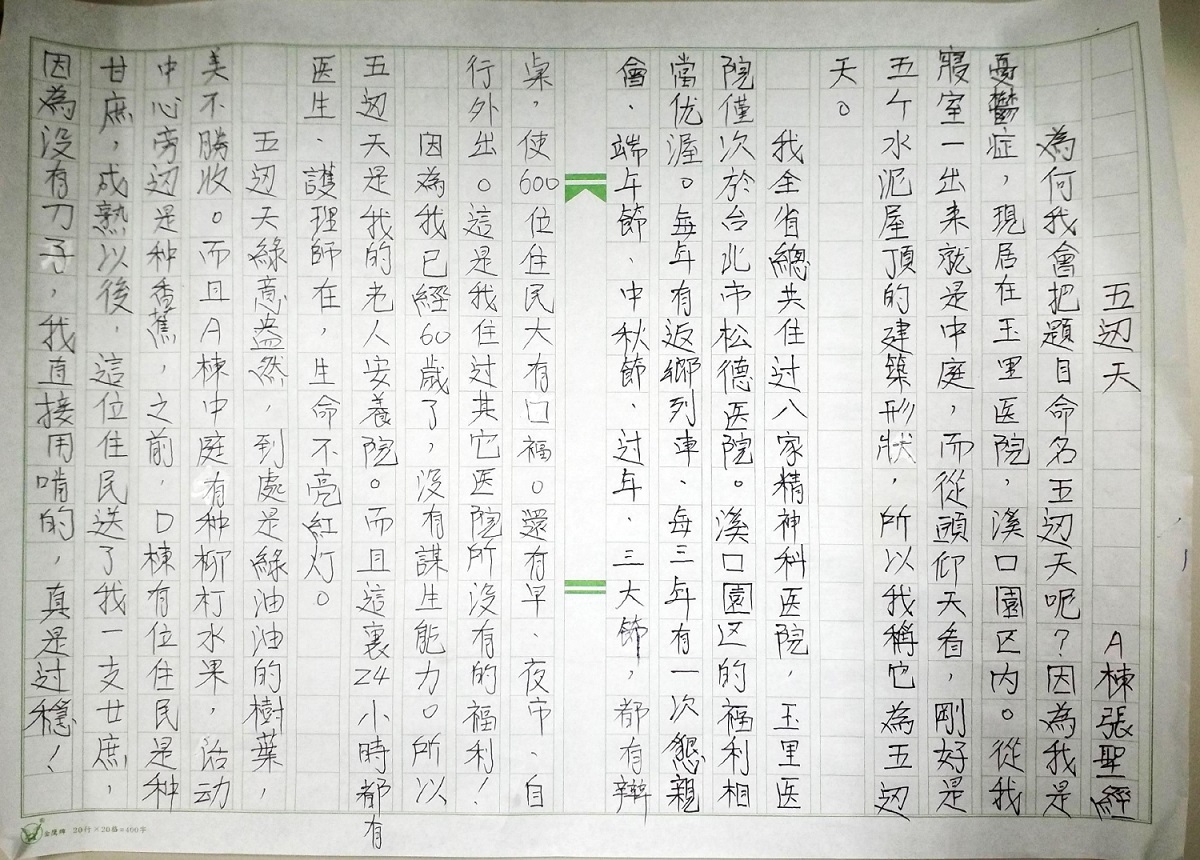 五边天　A棟張聖經
為何我會把題目命名五边天呢？因為我是
憂鬱症，現居在玉里医院，溪口園区内。從我
寢室一出来就是中庭，而從頭仰天看，剛好是
五个水泥屋頂的建築形狀，所以我稱它為五边
天。
我全省總共住过八家精神科医院，玉里医
院僅次於台北市松德医院。溪口園区的福利相
當优渥。每年有返鄉列車、每三年有一次懇親
會、端午節、中秋節、过年、三大節，都有辦
桌，使600位住民大有口福。還有早、夜市、自
行外出。這是我住过其它医院所没有的福利！
因為我已經60歲了，没有謀生能力。所以
五边天是我的老人安養院。而且這裏24小時都有
医生、護理師在，生命不亮紅灯。
五边天綠意盎然，到處是綠油油的樹葉，
美不勝收。而且A棟中庭有种柳朾水果，活动
中心旁边是种香蕉，之前，D棟有位住民是种
甘庶，成熟以後，這位住民送了我一支甘庶，
因為没有刀子，我直接用啃的，真是过穩！
金鷹牌 20行×20格=400字